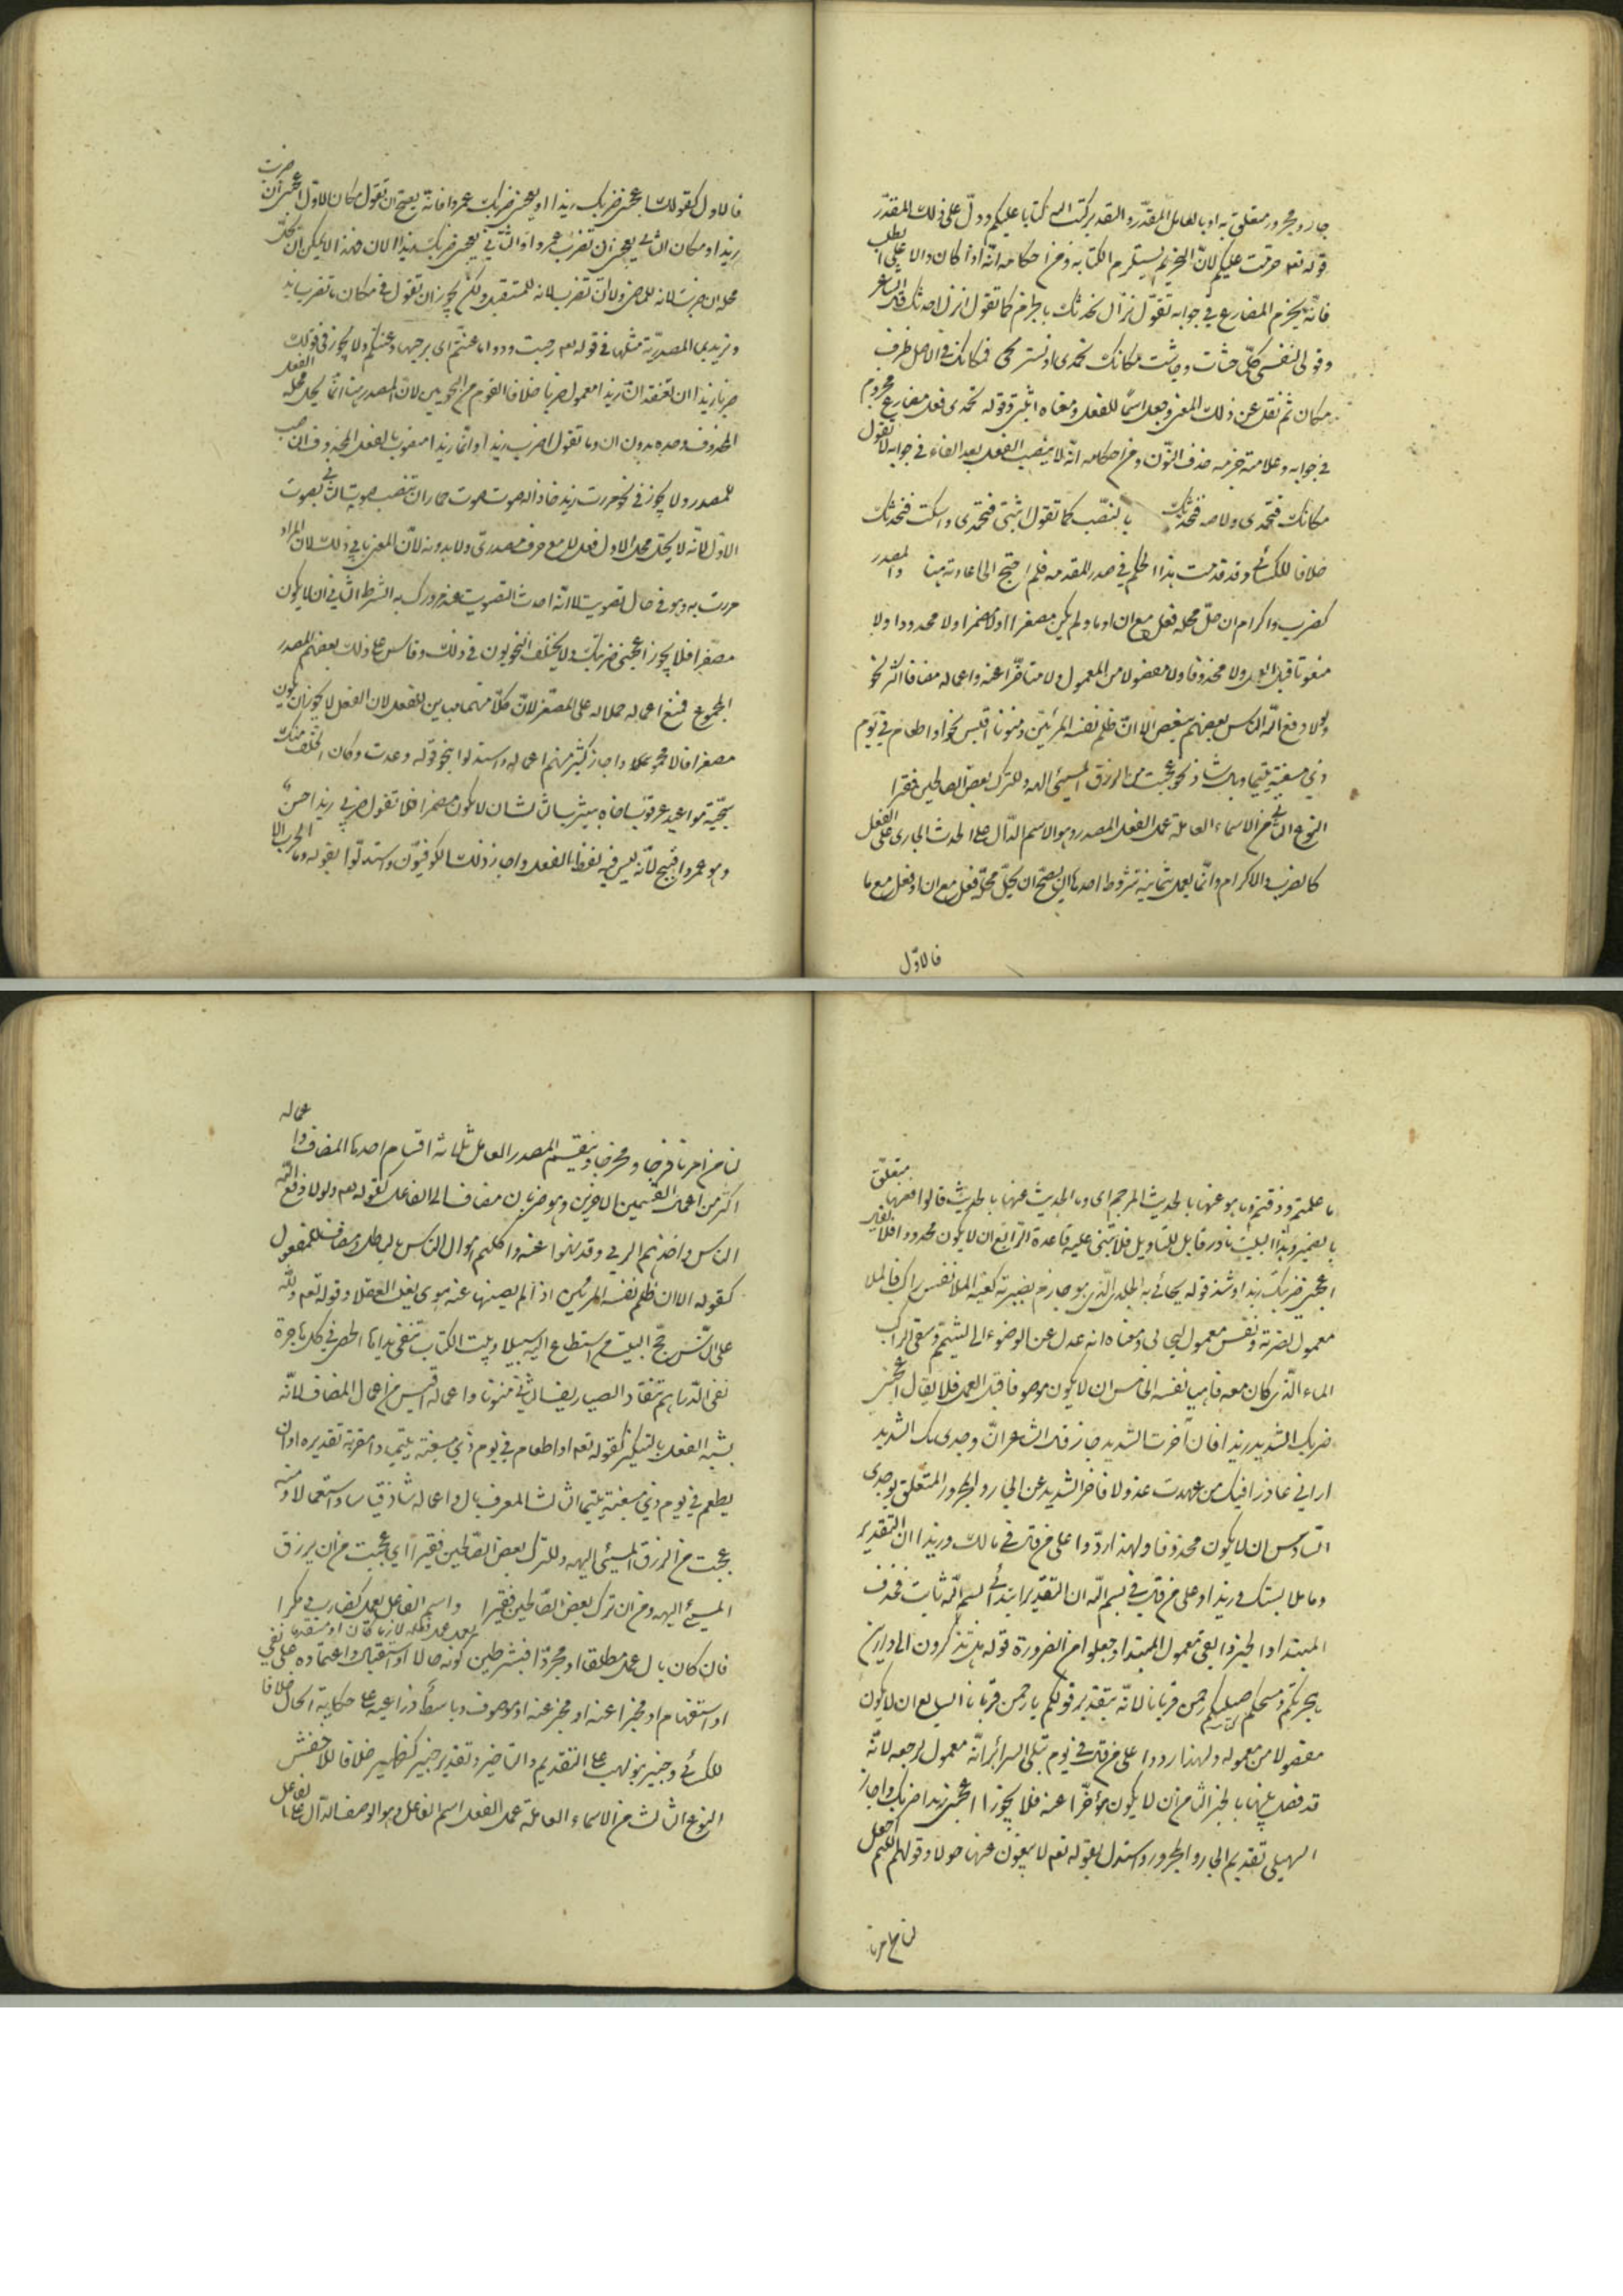 جار ومجرور متعلق به او بالعامل المقدر والتقدير كتب الله كتابا عليكم ودل على ذلك المقدر
قوله تعه حرمت عليكم لان التحريم يستلزم الكتابة ومن احكامه انه اذا كان دالا على الطلب
فانه يجزم المضارع في جوابه تقول نزال نحدثك بالجزم كما تقول انزل احدثك قال الشاعر
وقولى لنفسى كلما جشات وجاشت مكانك تحمدى او تستريحى فمكانك في الاصل ظرف
مكان ثم نقل عن ذلك المعنى وجعل اسما للفعل ومعناه اثبتى وقوله تحمدى فعل مضارع مجزوم
في جوابه وعلامة جزمه حذف النون ومن احكامه انه لا ينصب الفعل بعد الفاء في جوابه لا تقول
مكانك فتحمدى ولا صه فنحدثك بالنصب كما تقول اثبتى فتحمدى واسكت فنحدثك
خلافا للكسائي وقد قدمت هذا الحكم في صدر المقدمه فلم احتج الى اعادته هنا والمصدر
كضرب واكرام ان حل محله فعل مع ان او ما ولم يكن مصغرا ولا مضمرا ولا محدودا ولا
منعوتا قبل العمل ولا محذوفا ولا مفصولا من المعمول ولا متاخرا عنه واعماله مضافا اكثر نحو
ولولا دفع الله الناس بعضهم ببعض الا ان ظلم نفسه المرء بين ومنونا اقيس نحو او اطعام في يوم
ذي مسغبة يتيما وبال شاذ نحو عجبت من الرزق المسيئ الهه وللترك بعض الصالحين فقيرا
النوع الثاني من الاسماء العاملة عمل الفعل المصدر وهو الاسم الدال على الحدث الجارى على الفعل
كالضرب والاكرام وانما يعمل بثمانية شروط احدها ان يصح ان يحل محله فعل مع ان او فعل مع ما
فالاول
فالاول كقولك اعجبنى ضربك زيدا او يعجبنى ضربك عمروا فانه يصح ان تقول مكان الاول اعجبنى ان ضربت
زيدا ومكان الثاني يعجبنى ان تضرب عمروا والثاني نحو يعجبنى ضربك زيدا الان فهذا لا يمكن ان يحل
محله ان ضربت لانه للماضي ولا ان تضرب لانه للمستقبل ولكن يجوز ان تقول في مكانه ما تضرب
وتريد بما المصدرية مثلها في قوله تعه بما رحبت وودوا ما عنتم اى برحبها وعنتكم ولا يجوز في قولك
ضربا زيدا ان تعتقد ان زيدا معمول ضربا خلافا لقوم من النحويين لان المصدر هنا انما يحل محله الفعل
المحذوف وحده بدون ان وما تقول اضرب زيدا وانما زيدا منصوب بالفعل المحذوف الناصب
للمصدر ولا يجوز في نحو مررت بزيد فاذا له صوت صوت حمار ان تنصب صوت الثاني بصوت
الاول لانه لا يحل محل الاول فعل لا مع حرف مصدرى ولا بدونه لان المعنى يابى ذلك لان المراد
مررت به وهو في حال تصويته لا انه احدث التصويت عند مرورك به الشرط الثاني ان لا يكون
مصغرا فلا يجوز اعجبنى ضريبك زيدا ولا يختلف النحويون في ذلك وقاس على ذلك بعضهم المصدر
المجموع فمنع اعماله حملا له على المصغر لان كلا منهما مباين للفعل لان الفعل لا يجوز ان يكون
مصغرا ولا مجموعا واجاز كثير منهم اعماله واستدلوا بنحو قوله وعدت وكان الخلف منك
سجية مواعيد عرقوب اخاه بيثرب الثالث ان لا يكون مضمرا فلا تقول ضربي زيدا حسن
وهو عمروا قبيح لانه ليس فيه لفظ الفعل واجاز ذلك الكوفيون واستدلوا بقوله وما الحرب الا
ما علمتم وذقتم وما هو عنها بالحديث المرجم اى وما الحديث عنها بالحديث قالوا فعنها متعلق
بالضمير وهذا البيت نادر قابل للتاويل فلا تبنى عليه قاعدة الرابع ان لا يكون محدودا فلا تقول
اعجبنى ضربتك زيدا وشذ قوله يحائى به الجلد الذى هو حازم بضربة كفيه الملا نفس راكب فالملا
معمول لضربة ونفس معمول ليحائى ومعناه انه عدل عن الوضوء الى التيمم وسقى الراكب
الماء الذى كان معه فاحيا نفسه الخامس ان لا يكون موصوفا قبل العمل فلا يقال اعجبنى
ضربك الشديد زيدا فان اخرت الشديد جاز قال الشاعر ان وجدى بك الشديد
ارانى عاذرا فيك من عهدت عذولا فاخر الشديد عن الجار والمجرور المتعلق بوجدى
السادس ان لا يكون محذوفا ولهذا ردوا على من قال في مالك وزيدا ان التقدير
وملابستك زيدا وعلى من قال في بسم الله ان التقدير ابتدائى بسم الله ثابت فحذف
المبتدا والخبر وابقى معمول المبتدا وجعلوا من الضرورة قوله هل تذكرون الى الديرين
هجرتكم ومسحكم صلبكم رحمن قربانا لانه بتقدير وقولكم يا رحمن قربانا السابع ان لا يكون
مفصولا من معموله ولهذا ردوا على من قال في يوم تبلى السرائر انه معمول لرجعه لانه
قد فصل بينهما بالخبر الثامن ان لا يكون مؤخرا عنه فلا يجوز اعجبنى زيدا ضربك واجاز
السهيلى تقديم الجار والمجرور واستدل بقوله تعه لا يبغون عنها حولا وقولهم اللهم اجعل
لنا من امرنا
لنا من امرنا فرجا ومخرجا وينقسم المصدر العامل ثلاثة اقسام احدها المضاف واعماله
اكثر من اعمال القسمين الاخرين وهو ضربان مضاف الى الفاعل كقوله تعه ولولا دفع الله
الناس واخذهم الربى وقد نهوا عنه واكلهم اموال الناس بالباطل ومضاف للمفعول
كقوله الا ان ظلم نفسه المرء بين اذا لم يصنها عن هوى يغلب العقلا وقوله تعه ولله
على الناس حج البيت من استطاع اليه سبيلا وبيت الكتاب تنفى يداها الحصى في كل هاجرة
نفى الدراهم تنقاد الصياريف الثاني منونا واعماله اقيس من اعمال المضاف لانه
يشبه الفعل بالتنكير كقوله تعه او اطعام في يوم ذي مسغبة يتيما ذا مقربة تقديره او ان
يطعم في يوم ذي مسغبة يتيما الثالث المعرف بال واعماله شاذ قياسا واستعمالا ومنه
عجبت من الرزق المسيئ الهه وللترك بعض الصالحين فقيرا اى عجبت من ان يرزق
المسيئ الهه ومن ان ترك بعض الصالحين فقيرا واسم الفاعل كضارب ومكرم
فان كان بال عمل مطلقا او مجردا فبشرطين كونه حالا او استقبالا واعتماده على نفى
او استفهام او مخبرا عنه او موصوف وباسط ذراعيه على حكاية الحال خلافا
للكسائي وخبير بنو لهب على التقديم والتاخير وتقدير خبير كظهير خلافا للاخفش
النوع الثالث من الاسماء العاملة عمل الفعل اسم الفاعل وهو الوصف الدال على الفاعل